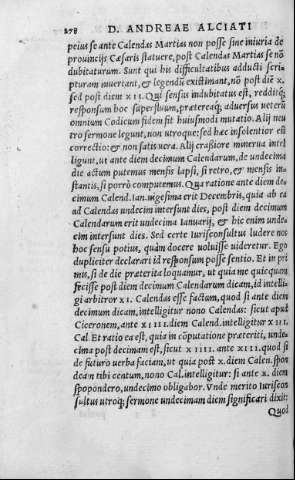 278 D. ANDREAE ALCIATI
peius se ante Calendas Martias non posse sine iniuria de
prouincijs Cæsaris statuere, post Calendas Martias se nõ
dubitaturum. Sunt qui his difficultatibus adducti scri-
pturam inuertant, & legendũ existimant, nō post diẽ x.
sed post diem XII. Qui sensus indubitatus est, redditq́;
responsum hoc superfluum, prætereaq́; aduersus veterũ
omnium Codicum fidem sit huiusmodi mutatio. Alij neu
tro sermone legunt, non utroque: sed hæc insolentior eũ
correctio: & non satis vera. Alij craßiore minerua intel
ligunt, ut ante diem decimum Calendarum, de undecima
die actum putemus mensis lapsi, si retro, & mensis in-
stantis, si porrò computemus. Qua ratione ante diem de-
cimum Calend. Ian. uigesima erit Decembris, quia ab ea
ad Calendas undecim intersunt dies, post diem decimum
Calendarum erit undecima Ianuarij, & hic enim unde-
cim intersunt dies. Sed certe Iurisconsultus ludere nos
hoc sensu potius, quàm docere uoluisse uideretur. Ego
dupliciter declarari id responsum posse sentio. Et in pri
mis, si de die præterita loquamur, ut quia me quicquam
fecisse post diem decimum Calendarum dicam, id intelli-
gi arbitror XI. Calendas esse factum, quod si ante diem
decimum dicam, intelligitur nono Calendas: sicut apud
Ciceronem, ante XIIII. diem Calend. intelligitur XIII.
Cal. Et ratio ea est, quia in cōputatione præteriti, unde-
cima post decimum est, sicut XIIII. ante XIII. quod si
de futuro uerba faciam, ut quia post x. diem Calen. spon
deam tibi centum, nono Cal. intelligitur: si ante x. diem
spopondero, undecimo obligabor. Vnde merito Iuriscon
sultus utroq́; sermone undecimam diem significari dixit:
Quod